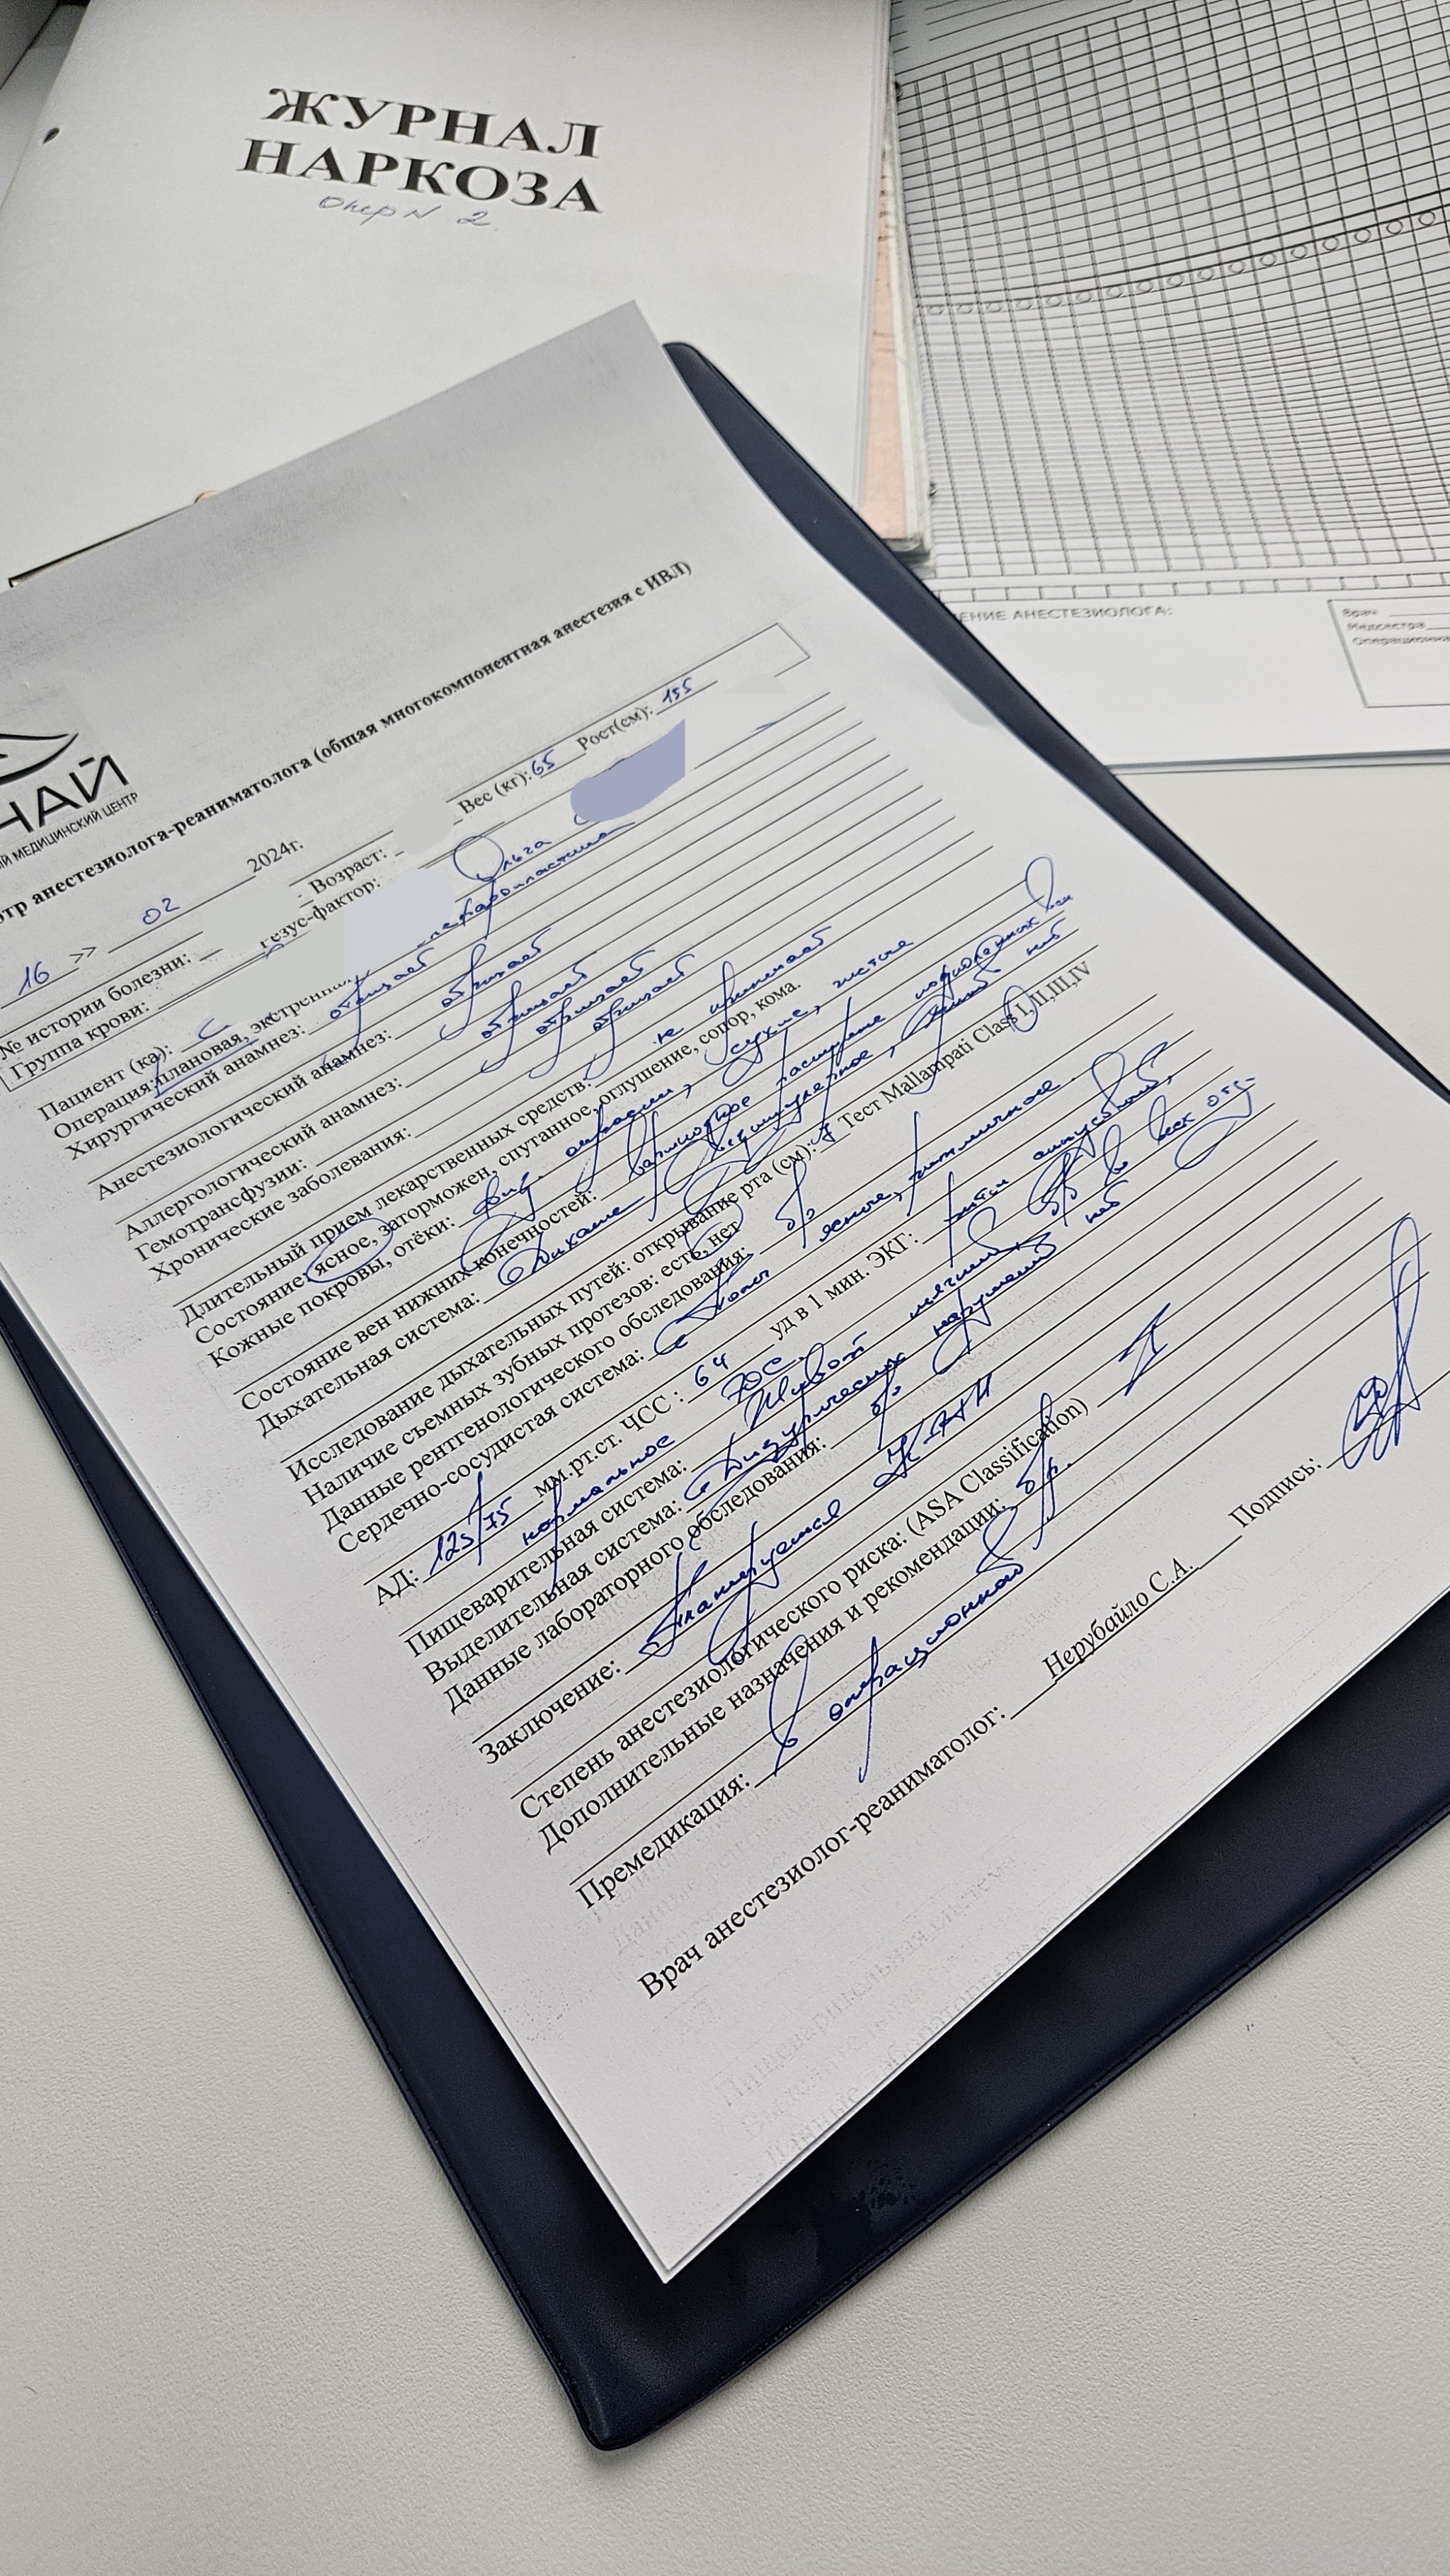 ЖУРНАЛ
НАРКОЗА
Опер N 2
ЕНИЕ АНЕСТЕЗИОЛОГА:
Врач
Медсестра
Операционная
НАЙ
ИЙ МЕДИЦИНСКИЙ ЦЕНТР
отр анестезиолога-реаниматолога (общая многокомпонентная анестезия с ИВЛ)
16 » 02 2024г.
№ истории болезни: Возраст: Вес (кг): 65 Рост(см): 155
Группа крови: резус-фактор:
Пациент (ка): С Ольга
Операция: плановая, экстренная
Хирургический анамнез: отрицает
Анестезиологический анамнез: отрицает
Аллергологический анамнез: отрицает
Гемотрансфузии: отрицает
Хронические заболевания: отрицает
Длительный прием лекарственных средств: не принимает
Состояние: ясное, заторможен, спутанное, оглушение, сопор, кома.
Кожные покровы, отёки: физ. окраски, сухие, чистые
Состояние вен нижних конечностей: варикозное расширение подкожных вен
Дыхательная система: Дыхание везикулярное, хрипов нет
Исследование дыхательных путей: открывание рта (см): 4 Тест Mallampati Class I,II,III,IV
Наличие съемных зубных протезов: есть, нет
Данные рентгенологического обследования: б/о
Сердечно-сосудистая система: Тоны ясные, ритмичные
АД: 125/75 мм.рт.ст. ЧСС : 64 уд в 1 мин. ЭКГ: ритм синусовый,
нормальное ЭОС
Пищеварительная система: Живот мягкий, б/б во всех отд.
Выделительная система: Дизурических нарушений нет
Данные лабораторного обследования: б/о
Заключение: Планируется КЭТН
Степень анестезиологического риска: (ASA Classification) I
Дополнительные назначения и рекомендации:
Премедикация: В операционной
Врач анестезиолог-реаниматолог: Нерубайло С.А. Подпись: